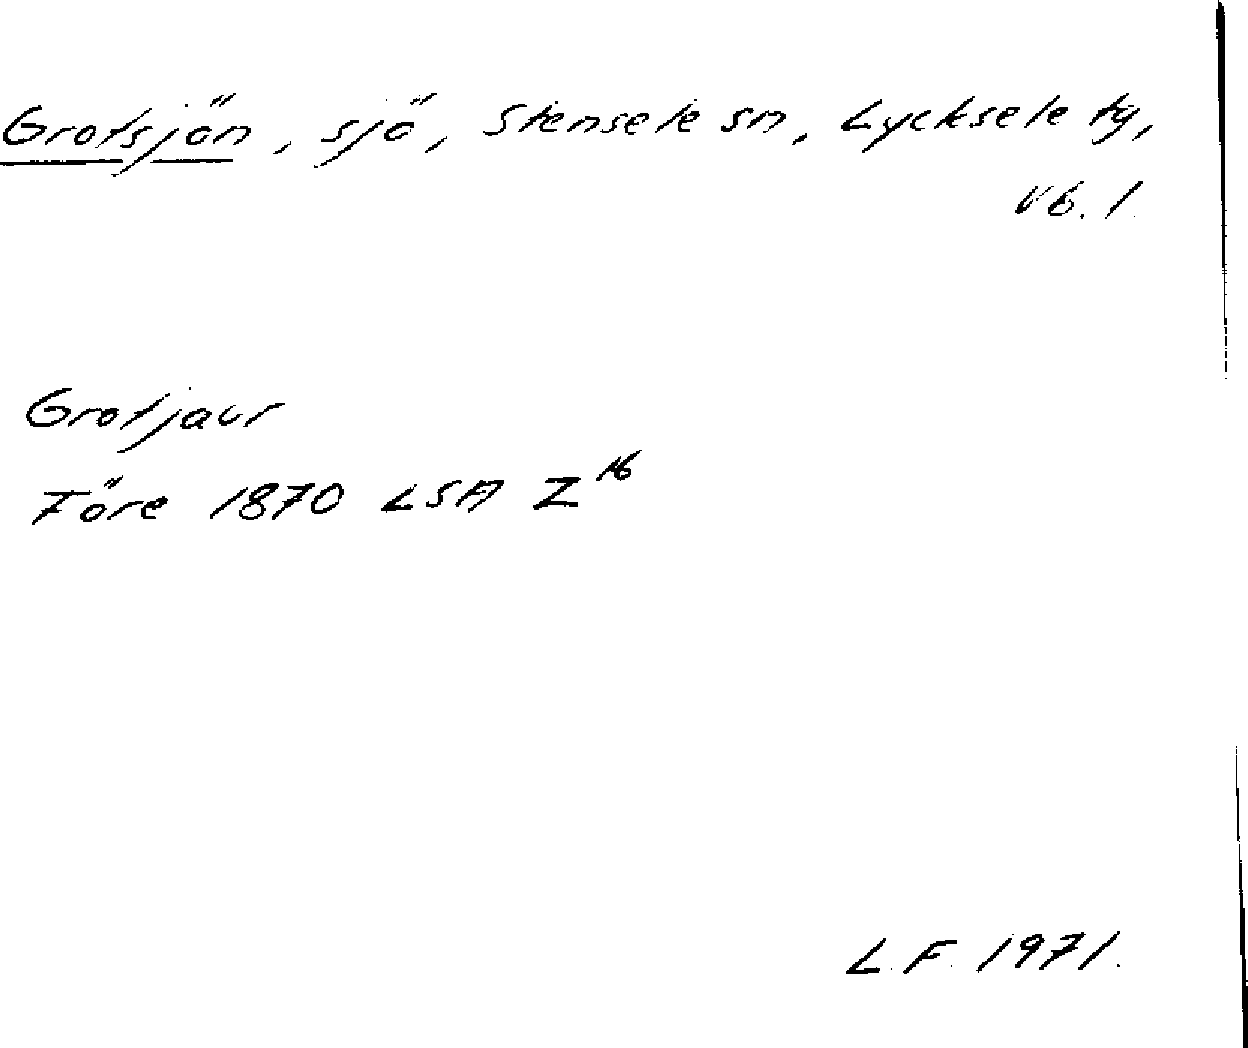 Grotsjön, sjö, Stensele sn, Lycksele tg,
Vb. l.
Grotjaur
Före 1870 LSA Z16
L.F. 1971.